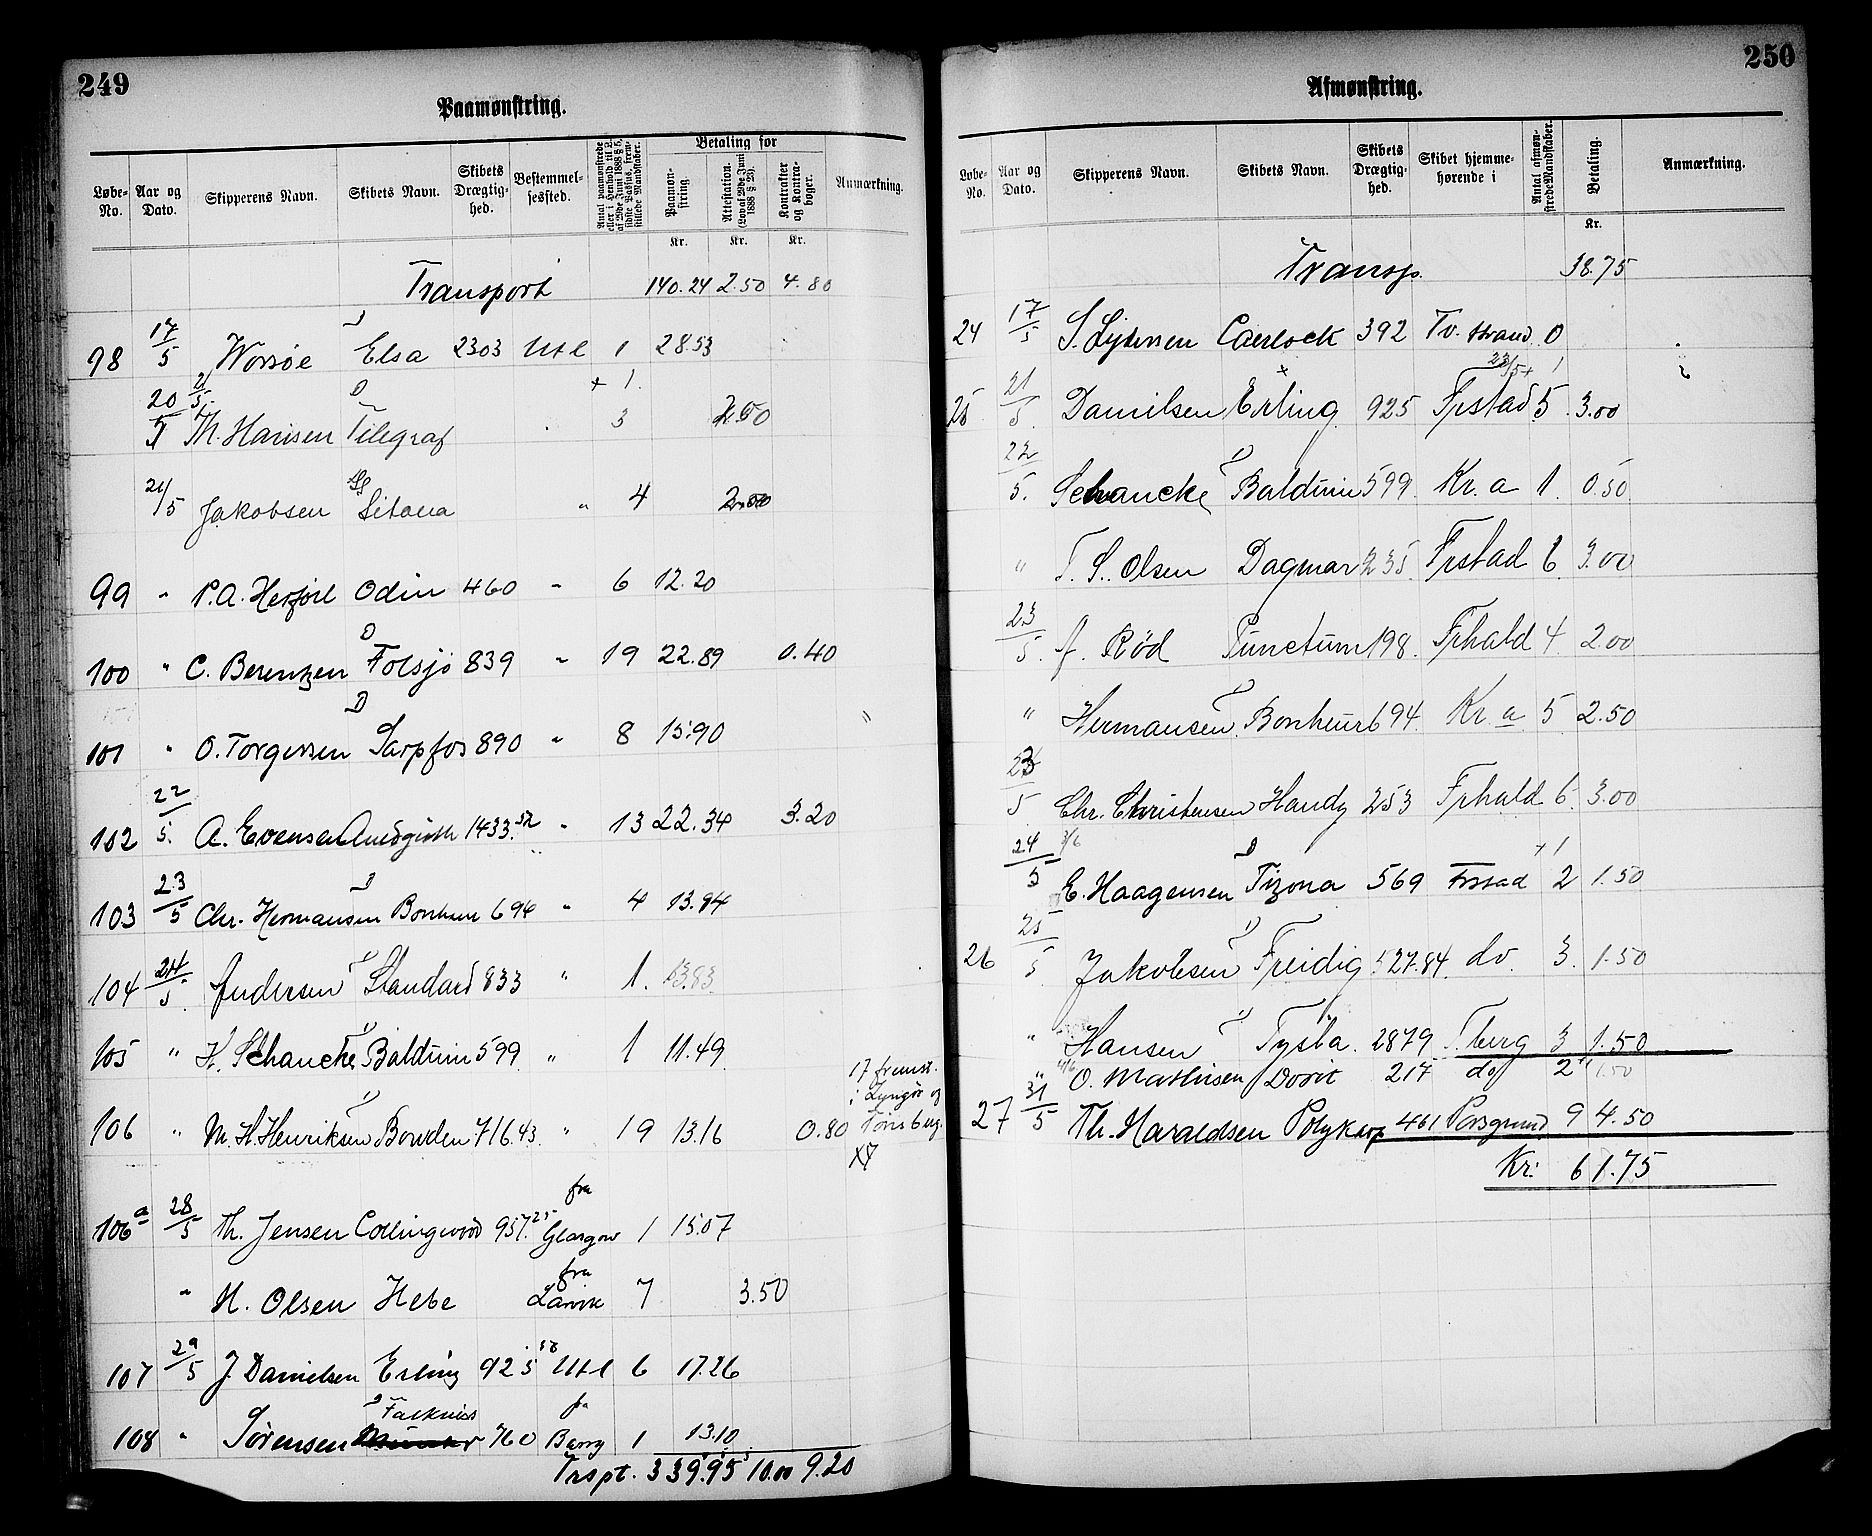 249
Paamønstring.
Løbe-No. Aar og Dato. Skipperens Navn. Skibets Navn. Skibets Drægtighed. Bestemmelsessted. Antal paamønstrede eller i Henhold til L. af 29de Juni 1888 § 5, sidste Passus, fremstillede Mandskaber. Betaling for Anmærkning.
Paamønstring. Attestation. (Lov af 29de Juni 1888 § 29). Kontrakter og Kontrabøger.
Kr. Kr. Kr.
Transport 140.24 2.50 4.80
98 17/5 Worsøe D Elsa 2303 Utl 1 28.53
20/5 21/5 Th. Hansen D Telegraf + 1 3 2.50
21/5 Jakobsen Sitona " 4 2.00
99 " P.A. Herføll Odin 460 " 6 12.20
100 " C. Berentzen D Folsjø 839 " 19 22.89 0.40
101 " O. Torgersen D Sarpfos 890 " 8 15.90 "
102 22/5. A. Evensen 1433.52 " 13 22.34 3.20
103 23/5 Chr. Hermansen D Bonheur 694 " 4 13.94
104 24/5. Andersen D Standard 833 " 1. 13.83
105 " H. Schancke D Balduin 599 " 1 11.49
106 " M. H. Henriksen D Bowden 716.43 " 19 13.16 0.80 17 fremst. i Lyngør og Tønsberg.
106a 28/5 Th. Jensen Collingwood 957.25 fra Glasgow 1 15.07
" N. Olsen Hebe fra Larvik 7 3.50
107 29/5 J. Danielsen Erling 925.58 Utl 6 17.26
108 " Sørensen D Falkniss 760 fa Barry 1 13.10
Trspt. 339.95 10.00 9.20
250
Afmønstring.
Løbe-No. Aar og Dato. Skipperens Navn. Skibets Navn. Skibets Drægtighed. Skibet hjemmehørende i Antal afmønstrede Mandskaber. Betaling. Anmærkning.
Kr.
Transp. 38.75
24 17/5 S. Sydersen Caerlock 392 Tv. strand 0
25 21/5. Danielsen + Erling 925 Frstad 23/5 + 1 5 3.00
22/5. Schancke D Balduin 599 Kr.a 1 0.50
" T. S. Olsen Dagmar 235 Frstad 6 3.00
23/5. A. Rød Punctum 198. Frhald 4 2.00
" Hermansen D Bonheur 694 Kr.a 5 2.50
23/5 Chr. Christensen Handy 253 Frhald 6 3.00
24/5 3/6 E. Haagensen D Tizona 569 Frstad + 1 2 1.50
26 25/5 Jakobsen D Freidig 527.84 do. 3 1.50
" Hansen D Tysla 2879 T.berg 3 1.50
" O. Mathisen Dovre 217 do 2 1.00
27 31/5 Th. Haraldsen Polykarp 461 Porsgrund 9 4.50
Kr. 61.75